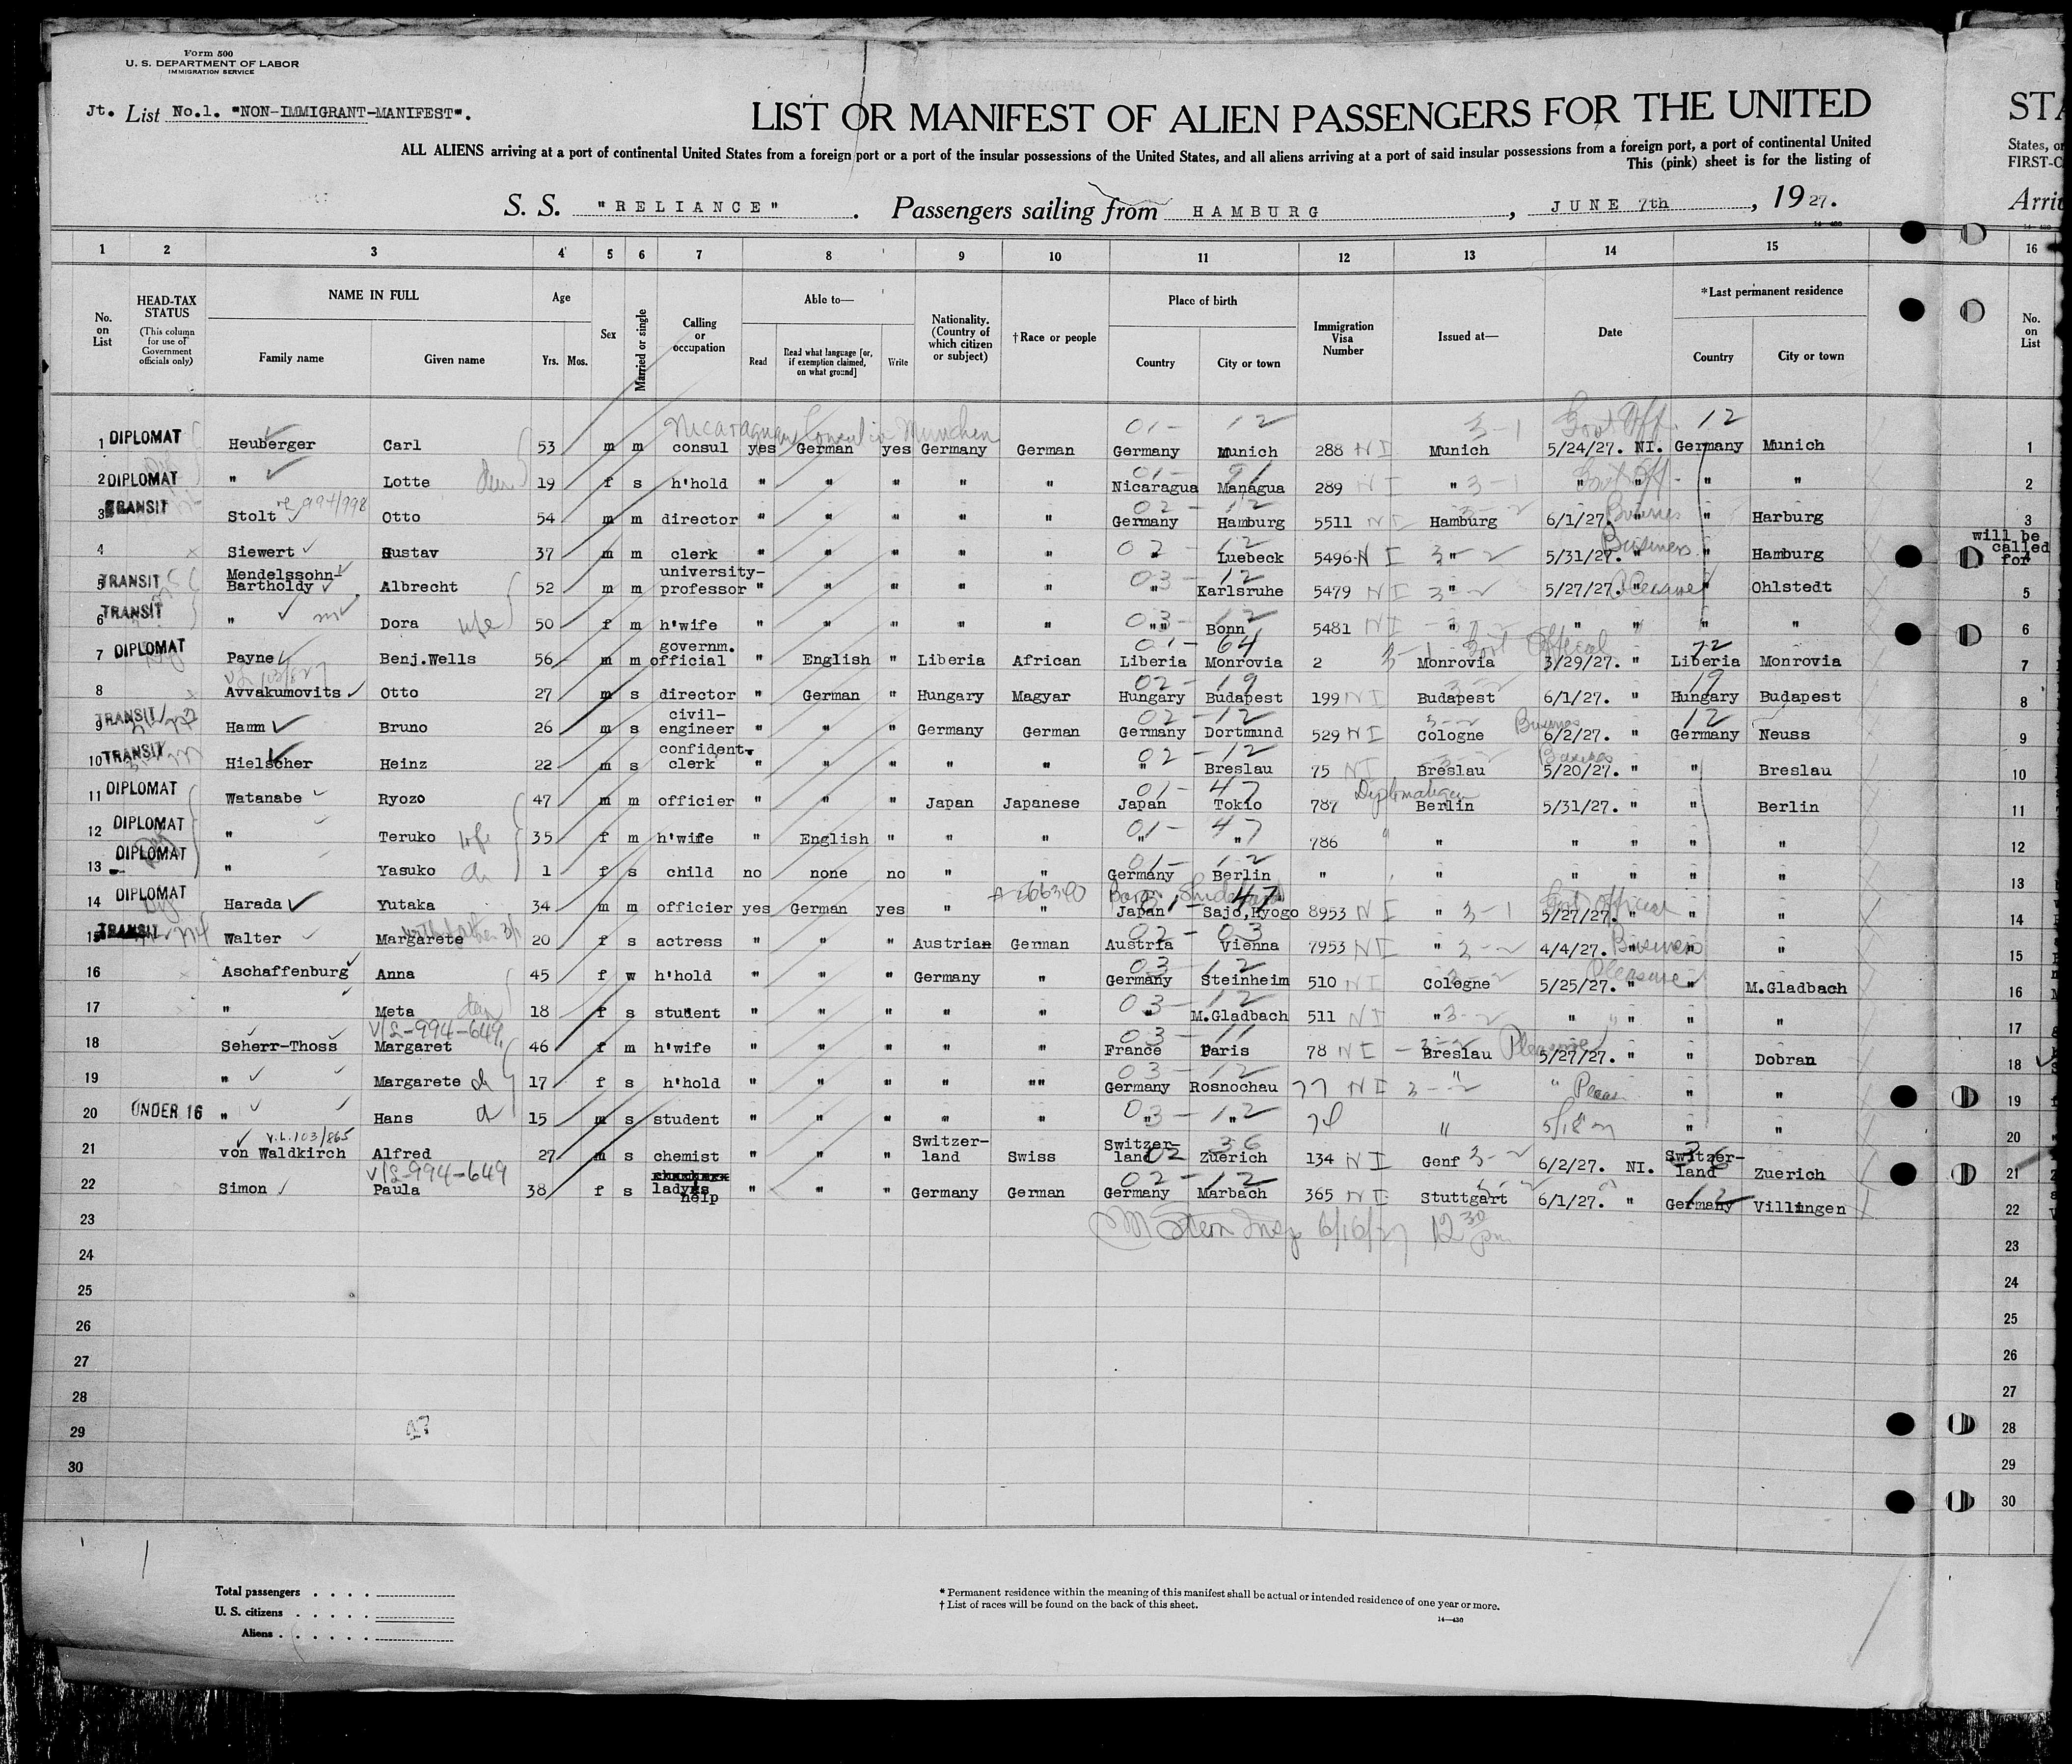 Form 500
U. S. DEPARTMENT OF LABOR
IMMIGRATION SERVICE
Jt. List No.1. "NON-IMMIGRANT-MANIFEST".
LIST OR MANIFEST OF ALIEN PASSENGERS FOR THE UNITED
STA
ALL ALIENS arriving at a port of continental United States from a foreign port or a port of the insular possessions of the United States, and all aliens arriving at a port of said insular possessions from a foreign port, a port of continental United
States, or
This (pink) sheet is for the listing of
FIRST-C
S. S. "RELIANCE" . Passengers sailing from HAMBURG , JUNE 7th , 1927.
Arri
14-430
1 2 3 4 5 6 7 8 9 10 11 12 13 14 15 16
No. on List
HEAD-TAX STATUS (This column for use of Government officials only)
NAME IN FULL Family name Given name
Age Yrs. Mos.
Sex
Married or single
Calling or occupation
Able to— Read Read what language [or, if exemption claimed, on what ground] Write
Nationality. (Country of which citizen or subject)
†Race or people
Place of birth Country City or town
Immigration Visa Number
Issued at—
Date
*Last permanent residence Country City or town
No. on List
Nicaraguan Consul in München 01- 12 3-1 Govt Off. 12
1 DIPLOMAT Heuberger Carl 53 m m consul yes German yes Germany German Germany Munich 288 NI Munich 5/24/27. NI. Germany Munich 1
2 DIPLOMAT " Lotte 19 f s h'hold " " " " " Nicaragua Managua 289 NI " 3-1 " " " " 2
3 TRANSIT Stolt 994/998 Otto 54 m m director " " " " " Germany Hamburg 5511 NI Hamburg 6/1/27. " " Harburg 3
will be called for
4 Siewert Gustav 37 m m clerk " " " " " " Luebeck 5496 NI 3"-2 5/31/27. Business " Hamburg
5 TRANSIT Mendelssohn-Bartholdy Albrecht 52 m m university-professor " " " " " " Karlsruhe 5479 NI 3"-2 5/27/27. " Pleasure " Ohlstedt 5
6 TRANSIT " Dora wife 50 f m h'wife " " " " " "" Bonn 5481 NI " " " " " 6
7 DIPLOMAT Payne Benj.Wells 56 m m governm. official " English " Liberia African Liberia Monrovia 2 3-1 Monrovia Govt Official 3/29/27. " Liberia Monrovia 7
8 Avvakumovits Otto 27 m s director " German " Hungary Magyar Hungary Budapest 199 NI Budapest 6/1/27. " Hungary Budapest 8
9 TRANSIT Hamm Bruno 26 m s civil-engineer " " " Germany German Germany Dortmund 529 NI Cologne 6/2/27. " Germany Neuss 9
10 TRANSIT Hielscher Heinz 22 m s confident. clerk " " " " " " Breslau 75 NI Breslau 5/20/27. " " Breslau 10
11 DIPLOMAT Watanabe Ryozo 47 m m officier " " " Japan Japanese Japan Tokio 787 Berlin 5/31/27. " " Berlin 11
12 DIPLOMAT " Teruko wife 35 f m h'wife " English " " " " " 786 " " " " " 12
13 DIPLOMAT " Yasuko 1 f s child no none no " " Germany Berlin " " " " " " 13
14 DIPLOMAT Harada Yutaka 34 m m officier yes German yes " " Japan Sajo,Hyogo 8953 NI " 3-1 5/27/27. " Govt Official " " 14
15 TRANSIT Walter Margarete 20 f s actress " " " Austrian German Austria Vienna 7953 NI " 3-2 4/4/27. " Business " " 15
16 Aschaffenburg Anna 45 f w h'hold " " " Germany " Germany Steinheim 510 NI Cologne 5/25/27. " Pleasure " M.Gladbach 16
17 " Meta 18 f s student " " " " " " M.Gladbach 511 NI "3-2 " " " " 17
V/L-994-649
18 Seherr-Thoss Margaret 46 f m h'wife " " " " " France Paris 78 NI Breslau Pleasure 5/27/27. " " Dobran 18
19 " Margarete 17 f s h'hold " " " " "" Germany Rosnochau 77 NI 3-2 " " " " 19
20 UNDER 16 " Hans 15 m s student " " " " " " " " 5/18 " " 20
V.L.103/865
21 von Waldkirch Alfred 27 m s chemist " " " Switzer-land Swiss Switzer-land Zuerich 134 NI Genf 3-2 6/2/27. NI. Switzer-land Zuerich 21
V/L-994-649
22 Simon Paula 38 f s lady's help " " " Germany German Germany Marbach 365 NI Stuttgart 6/1/27. " Germany Villingen 22
23 M Stern Insp 6/16/27 12 30 pm 23
24 24
25 25
26 26
27 27
28 28
29 29
30 30
Total passengers . . . .
U. S. citizens . . . . .
Aliens . . . . . .
* Permanent residence within the meaning of this manifest shall be actual or intended residence of one year or more.
† List of races will be found on the back of this sheet.
14-430